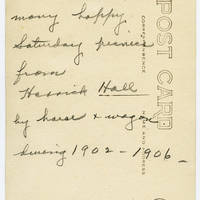 many happy
Saturday picnics
from
Herrick Hall
by horse & wagon
during 1902 - 1906
POST CARD
CORRESPONDENCE
NAME AND ADDRESS